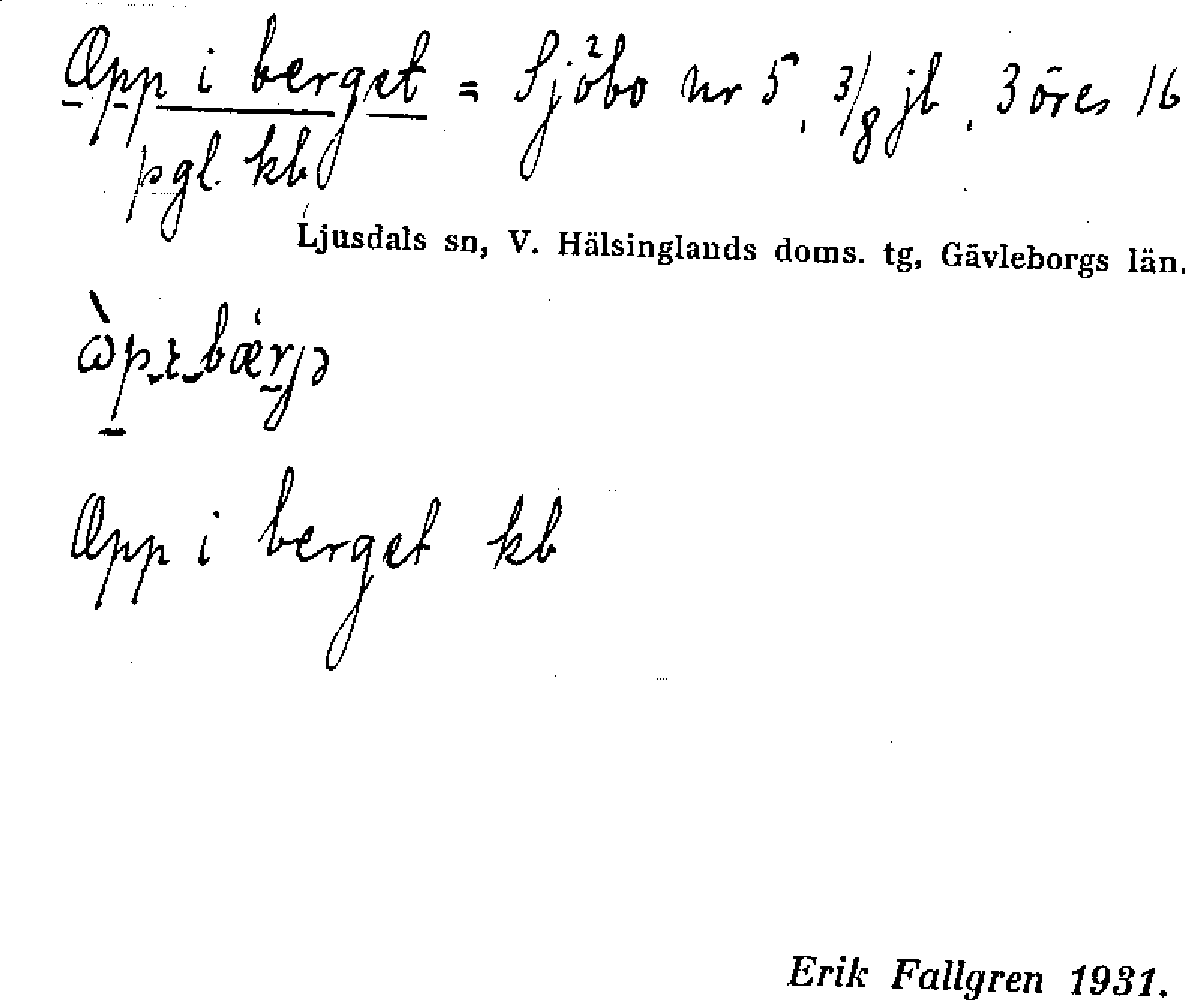 Opp i berget = Sjöbo nr 5, 3/8 jb. 3 öres 16
pgl. kb
Ljusdals sn, V. Hälsinglands doms. tg, Gävleborgs län.
Opp i berget kb
Erik Fallgren 1931.